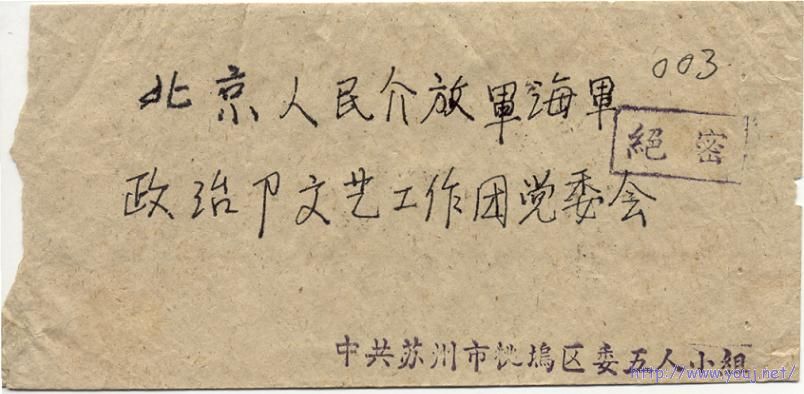 003
北京人民介放軍海軍
絕密
政治卩文艺工作团党委会
中共苏州市桃塢区委五人小組
http://www.youj.net/